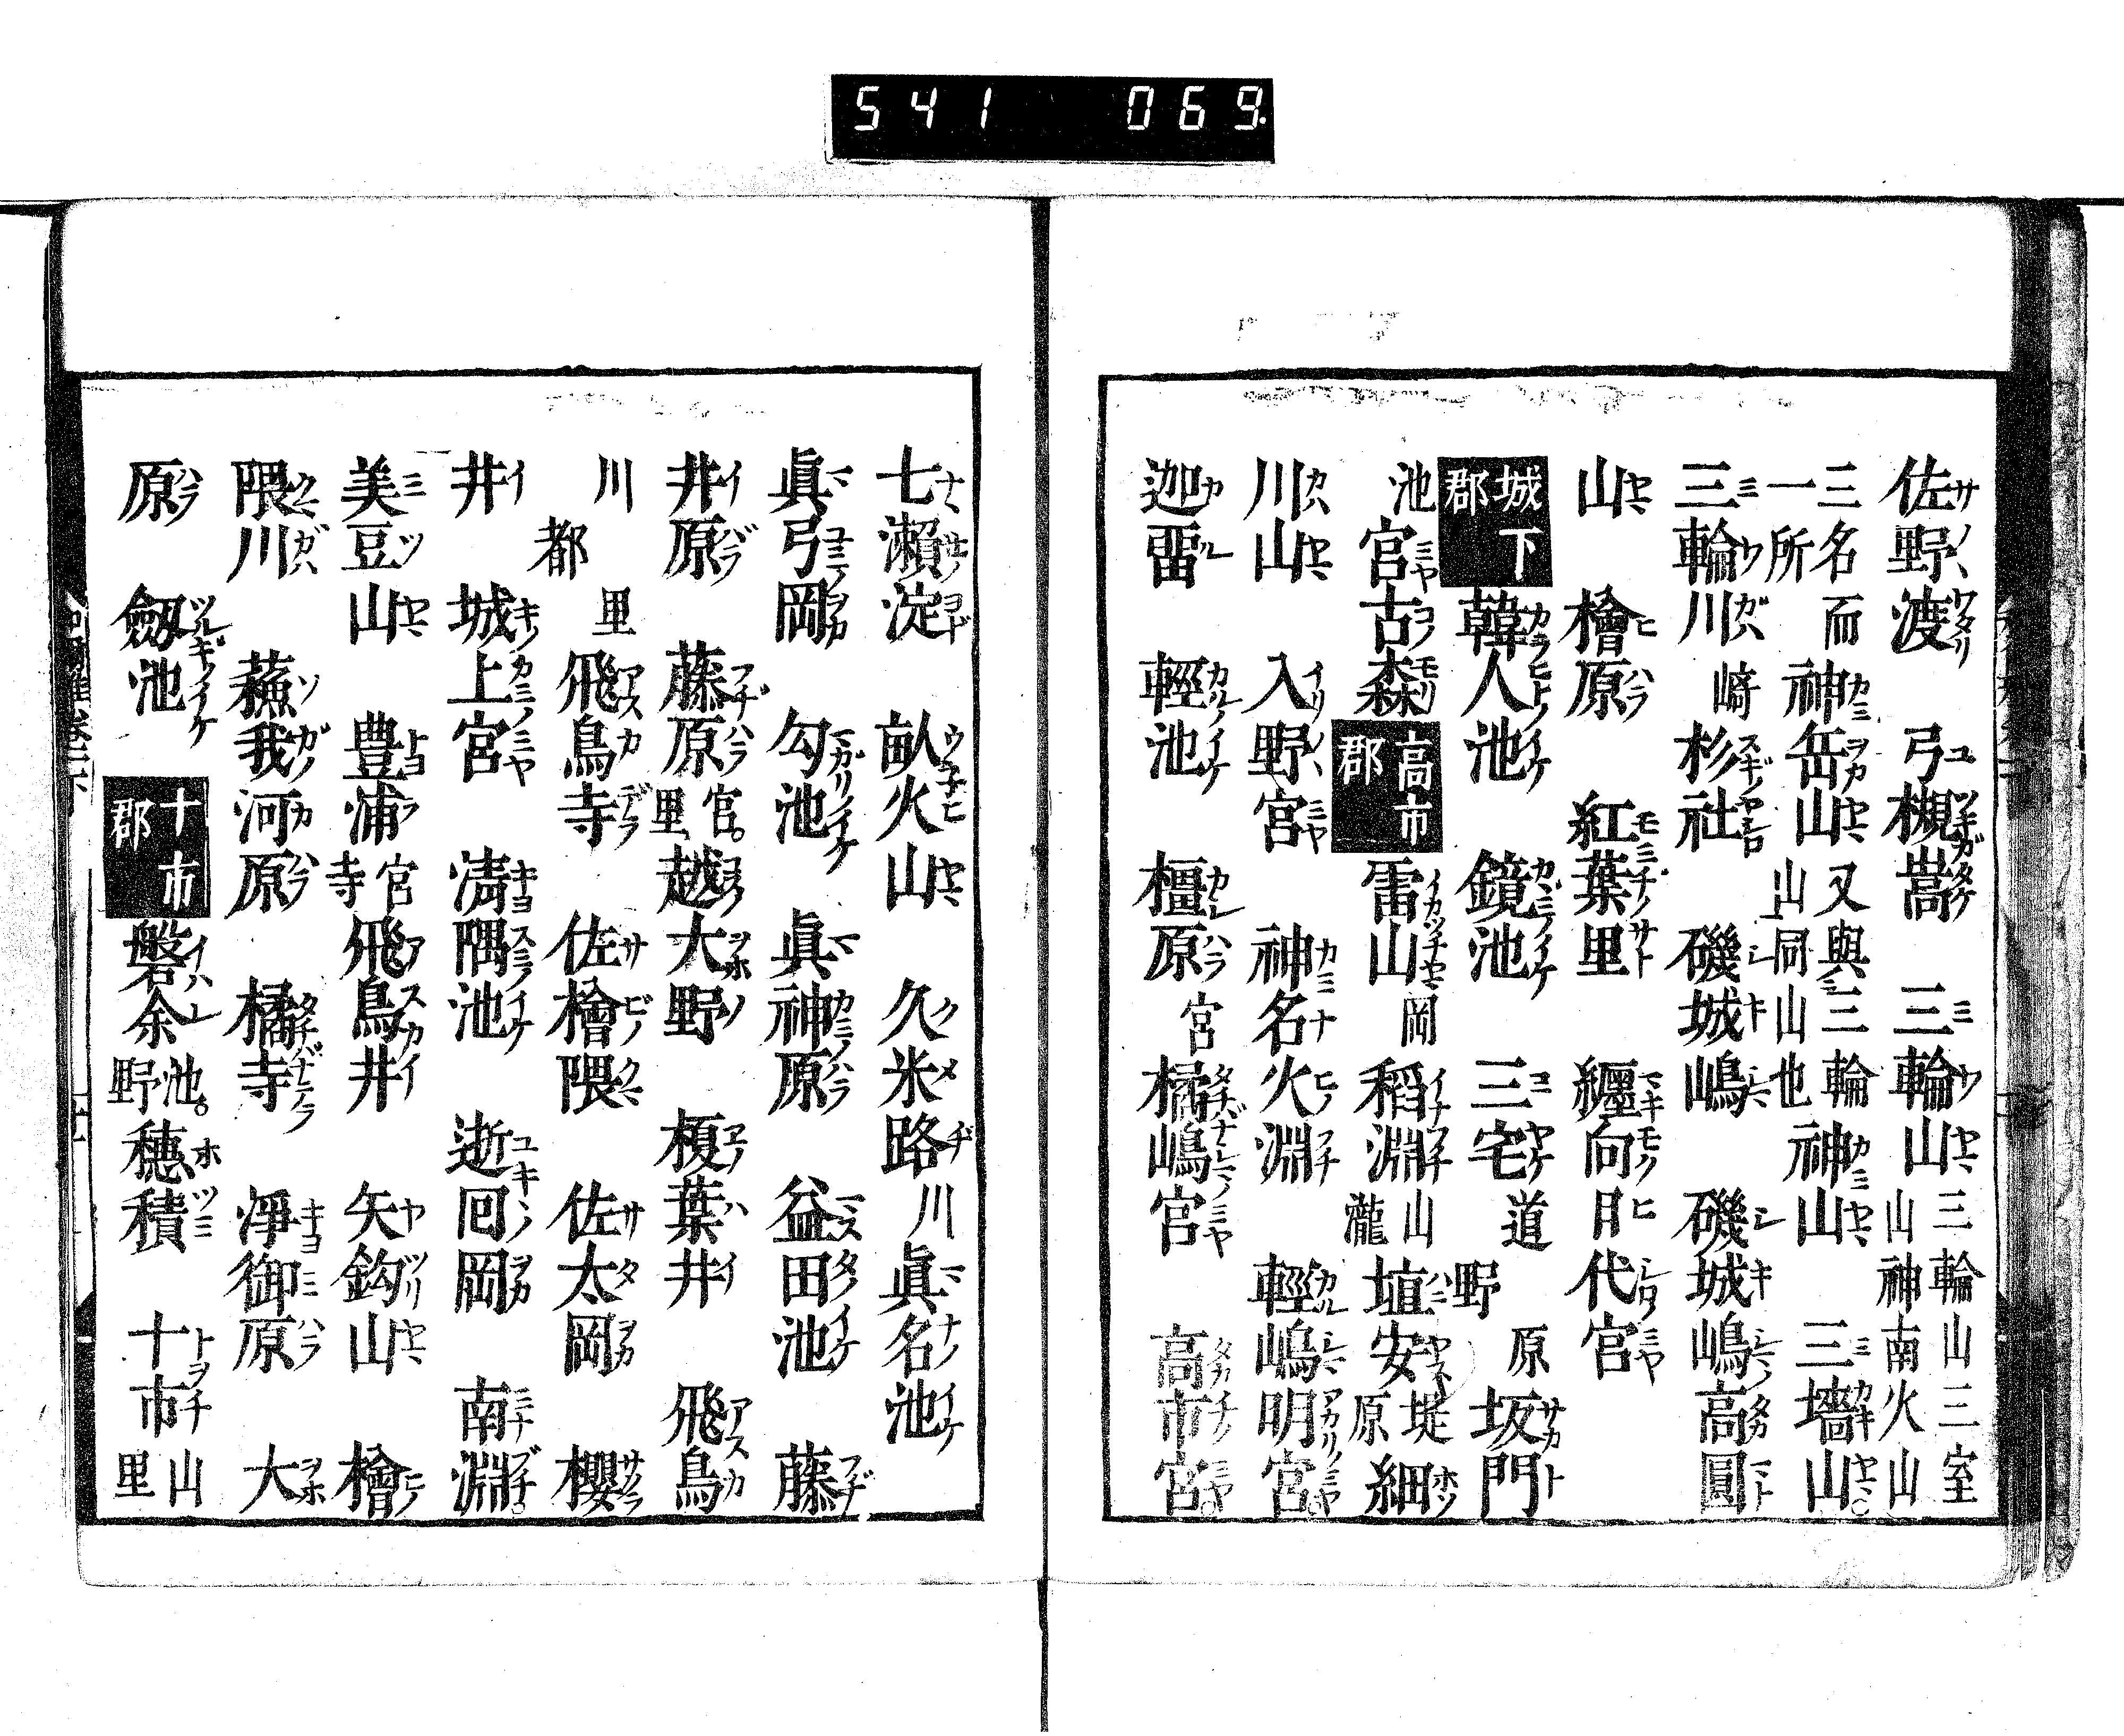 541 069.
佐野渡 弓槻嵩 三輪山 三輪山三室山神南火山
三名而一所 神岳山 又與三輪山同山也 神山 三墻山
三輪川 崎 杉社 磯城嶋 磯城嶋高圓
山 檜原 紅葉里 纏向日代宮
城下郡 韓人池 鏡池 三宅道 原野 坂門
池 宮古森 高市郡 雷山岡 稻淵山瀧 埴安堤原 細
川山 入野宮 神名火淵 輕嶋明宮
迦畱 輕池 橿原宮 橘嶋宮 高市宮
七瀬淀 畝火山 久米路川 眞名池
眞弓岡 勾池 眞神原 益田池 藤
井原 藤原宮里 越大野 榎葉井 飛鳥
川里都 飛鳥寺 佐檜隈 佐太岡 櫻
井 城上宮 清隅池 逝囘岡 南淵
美豆山 豊浦宮寺 飛鳥井 矢釣山 檜
隈川 蘓我河原 橘寺 淨御原 大
原 劔池 十市郡 磐余池野 穂積 十市山里